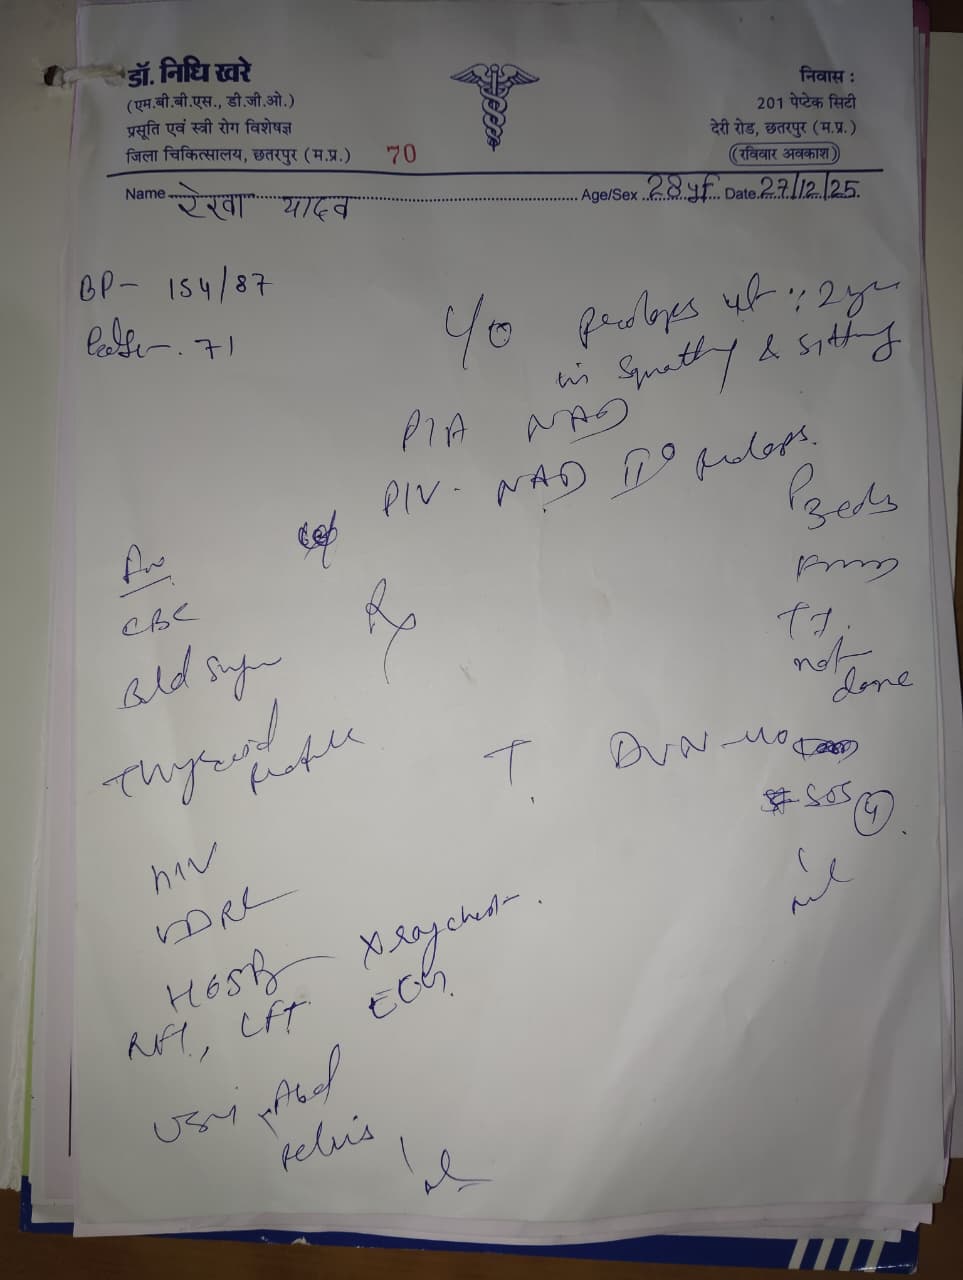 डॉ. निधि खरे
(एम.बी.बी.एस., डी.जी.ओ.)
प्रसूति एवं स्त्री रोग विशेषज्ञ
जिला चिकित्सालय, छतरपुर (म.प्र.) 70
निवास :
201 पेप्टेक सिटी
देरी रोड, छतरपुर (म.प्र.)
(रविवार अवकाश)
Name रेखा यादव Age/Sex 28yf Date 27/12/25.
BP- 154/87
71
C/o 2 yrs
in Squatting & sitting
P/A NAD
P/V- NAD II° prolaps.
CBC
Rx
Thyroid profile
not done
T DVN-M0
SOS (4)
HIV
VDRL
X ray chest
RFT, LFT ECG.
USG Abd
pelvis